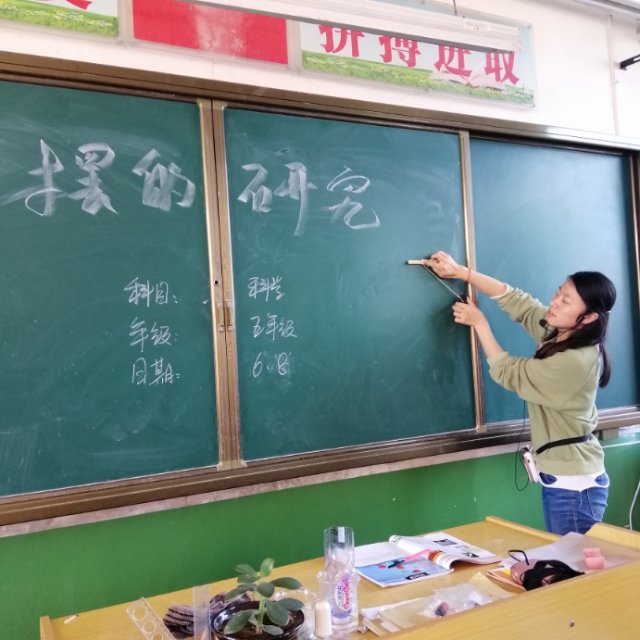 拼搏进取
摆的研究
科目: 科学
年级: 五年级
日期: 6.8